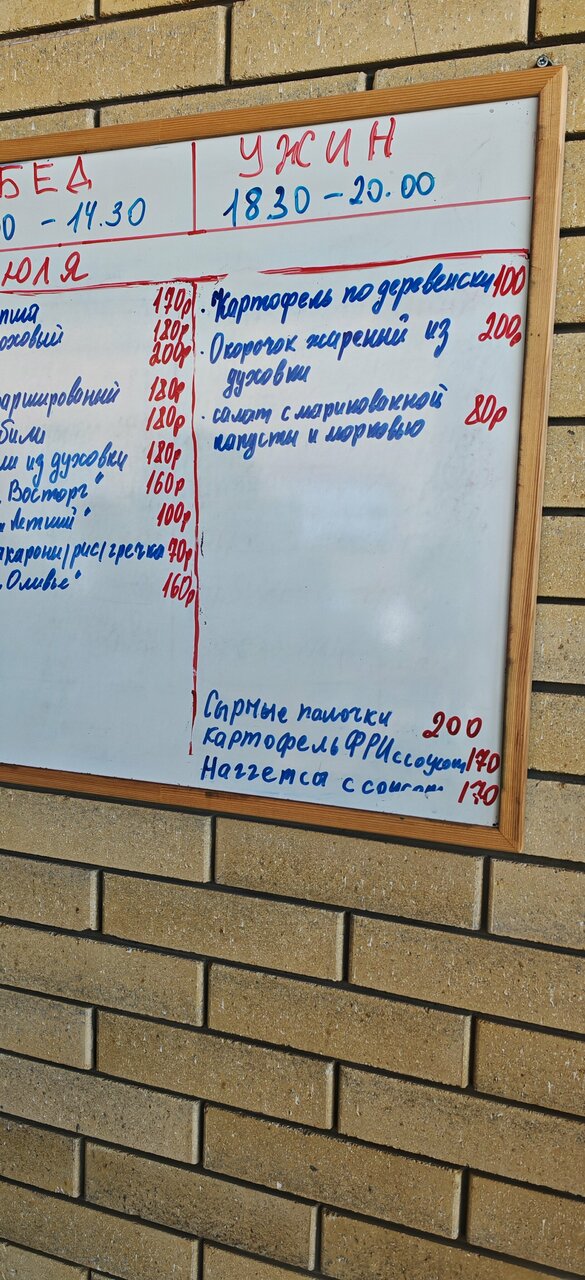 БЕД
0 - 14.30
ЮЛЯ
пша 170р
уховый 180р
200р
аршированый 180р
били 180р
ли из духовки 180р
Восторг" 160р
Летний" 100р
акарони/рис/гречка 70р
Оливье" 160р
УЖИН
18.30 - 20.00
· Картофель по деревенски 100
· Окорочок жареный из 200р
духовки
· салат с маринованной 80р
капусты и морковью
Сырные палочки 200
Картофель ФРИ с соусом 170
Наггетсы с соусом 170